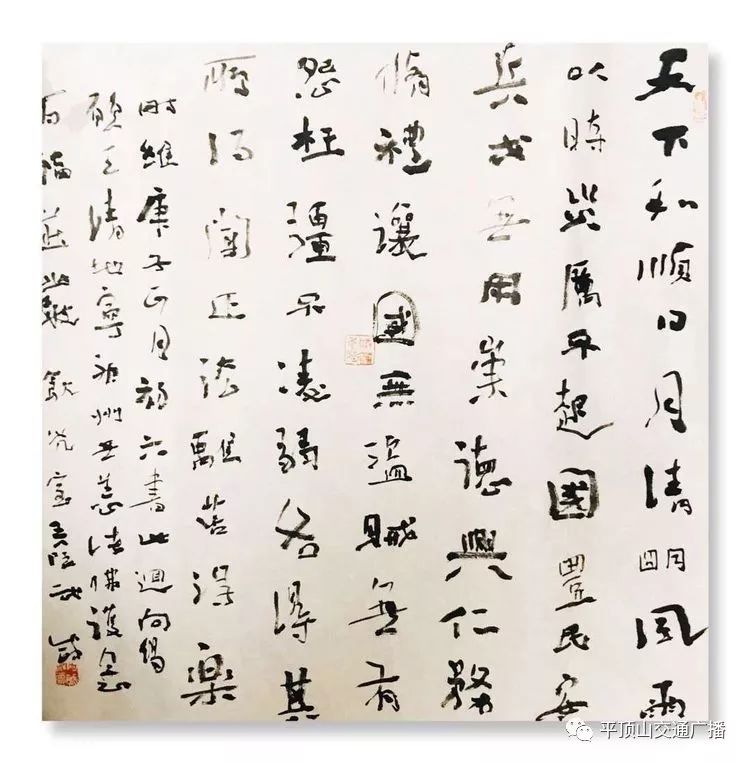 天下和順日月清明風雨
以時災厲不起國豐民安
兵戈無用崇德興仁務
脩禮讓國無盜賊無有
怨枉彊不凌弱各得其
所得聞正法離苦得樂
時維庚子正月初六書此迴向偈
願天清地寧神州無恙諸佛護念
百福莊嚴
平顶山交通广播